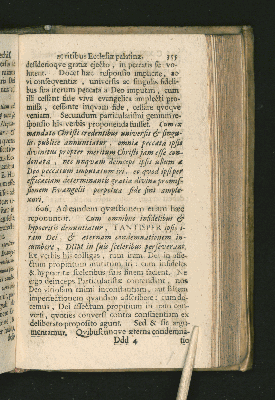 ac ritibus Ecclesiæ palatinæ. 355
desideriorque gratia ejecto, in peccatis se vo-
lutent. Docet hæc responsio implicite, ac
vi consequentiæ, universis ac singulis fidelibus
sua iterum peccata a Deo imputari, cum
illi cessant fide viva evangelica amplecti pro-
missa, cessante inquam fide, cessare quoque
veniam. Secundum particularissimi genuini re-
sponsio his verbis proponenda fuisset: Cum ex
mandato Christi credentibus universis & singu-
lis publice annuntiatur, omnia peccata ipsis
divinitus propter meritum Christi jam esse con-
donata, nec unquam deinceps ipsis ullum a
Deo peccatum imputatum iri, eo quod ipsi per
efficaciam determinantis gratiæ divinæ promis-
sionem Evangelii perpetua fide sint amplexuri.
606. Ad eandem quæstionem etiam hæc
reponuntur. Cum omnibus infidelibus &
hypocritis denuntiatur, TANTISPER ipsis i-
ram Dei & æternam condemnationem in-
cumbere, DUM in suis sceleribus perseverant.
Ex verbis his colligas, tam iram Dei in affe-
ctum propitium mutatum iri: cum infideles
& hypocritæ sceleribus suis finem facient. Ne
ergo deinceps Particularistæ contendant, nos
Deo vitiosam animi inconstantiam, aut fictam
imperfectionem quandam adscribere: cum do-
cemus, Dei affectum propitium in eum con-
verti, quoties conversi contra conscientiam ex
deliberato proposito agunt. Sed & sic argu-
mentamur. Quibuscunque æterna condemna-
Ddd 4 tio